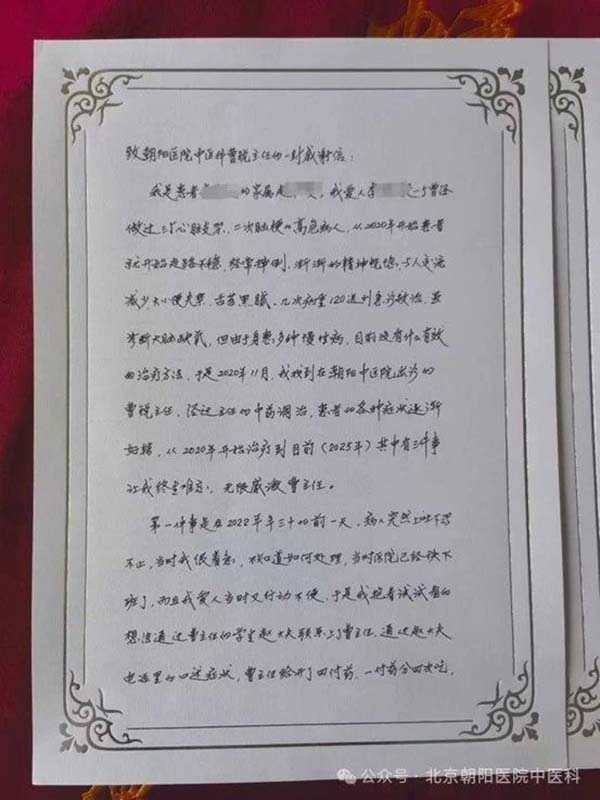 致朝阳医院中医科曹锐主任的一封感谢信:
我是患者的家属是，我爱人李是一个曾经
做过三个心脏支架、二次脑梗的高危病人，从2020年开始患者
就开始走路不稳，经常摔倒、渐渐的精神恍惚，与人交流
减少，大小便失禁，舌苔黑腻、几次病重120送到急诊救治，虽
诊断大脑缺氧，但由于身患多种慢性病，目前没有什么有效
的治疗方法，于是2020年11月，我找到在朝阳中医院出诊的
曹锐主任，经过主任的中药调治，患者的各种症状逐渐
好转，从2020年开始治疗到目前（2025年）其中有三件事
让我终生难忘，无限感激曹主任。
第一件事是在2022年年三十的前一天，病人突然上吐下泻
不止，当时我很着急，不知道如何处理，当时医院已经快下
班了，而且我爱人当时又行动不便，于是我抱着试试看的
想法通过曹主任的学生赵大夫联系上了曹主任，通过赵大夫
电话里的口述症状，曹主任给开了四付药，一付药分四次吃，
公众号·北京朝阳医院中医科